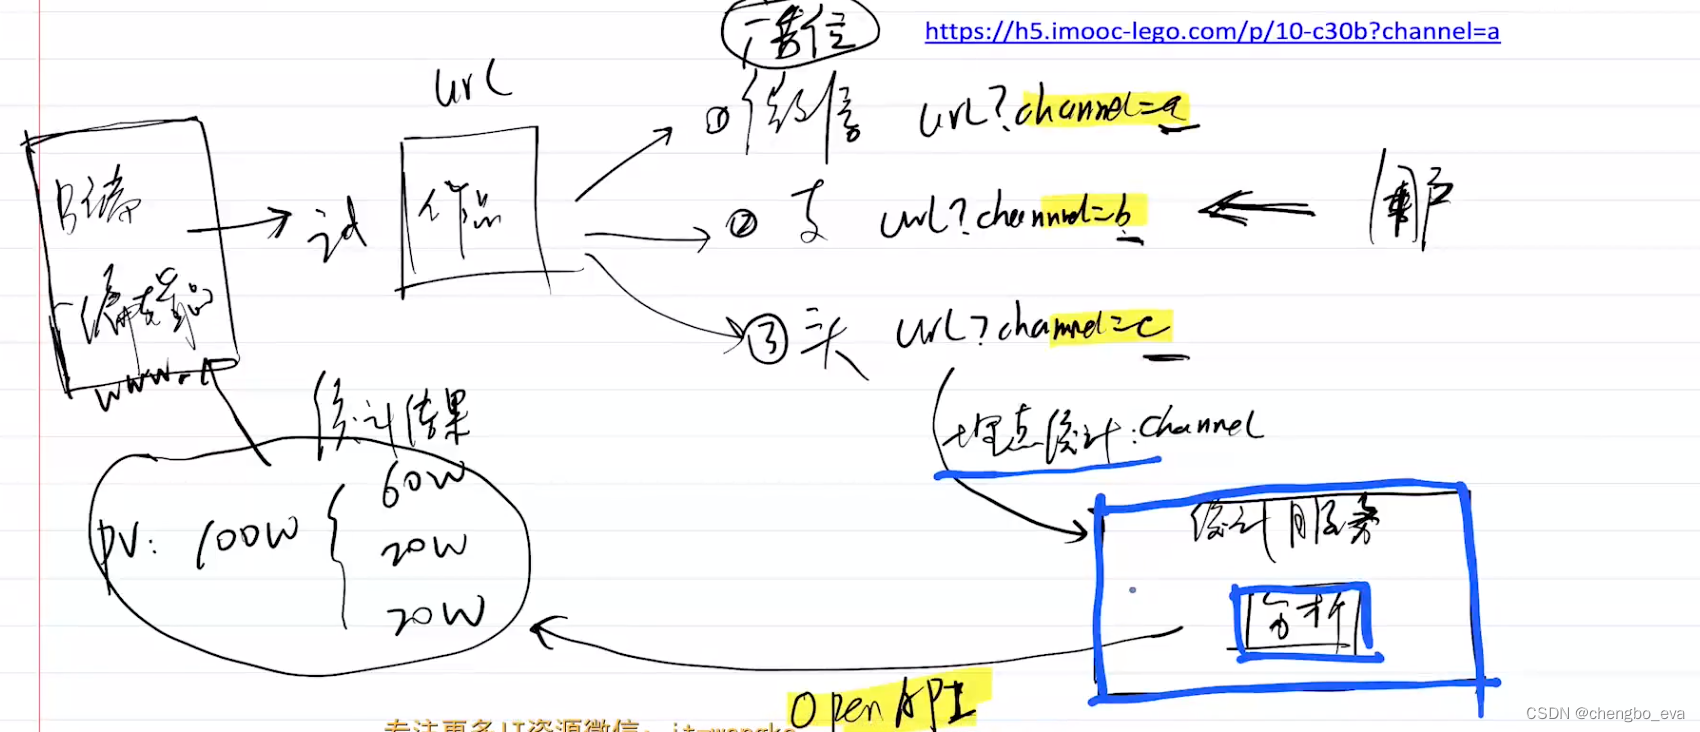 https://h5.imooc-lego.com/p/10-c30b?channel=a
url
① 微信 url?channel=a
B端
作品
② 支 url?channel=b
用户
编辑器
③ 头 url?channel=c
www.
统计结果
埋点统计:channel
PV: 100W
60W
20W
20W
统计服务
分析
Open API
专注更多IT资源微信:
CSDN @chengbo_eva